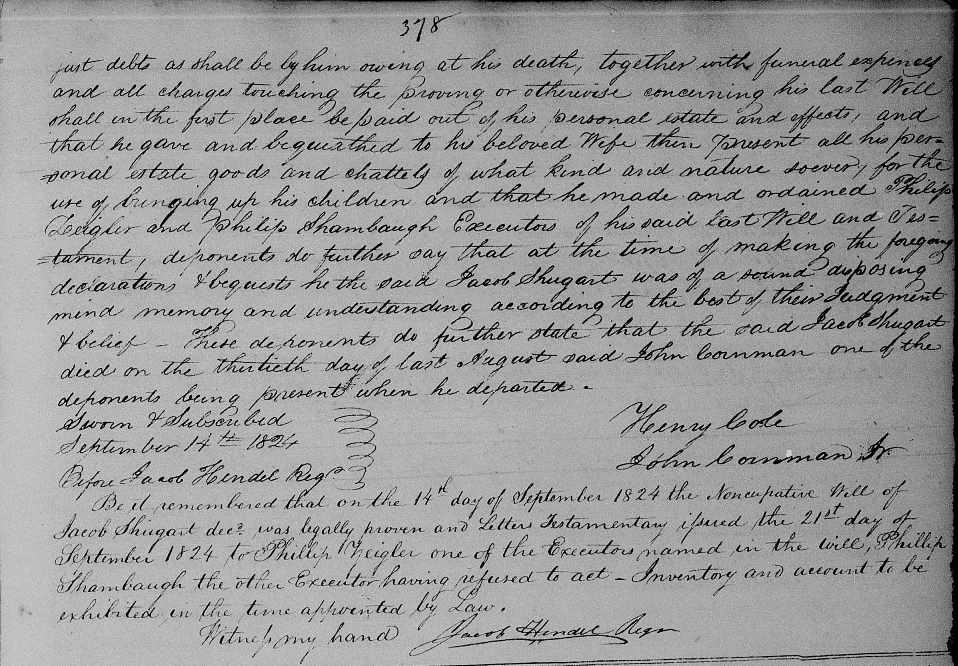 378
just debts as shall be by him owing at his death, together with funeral expences
and all charges touching the proving or otherwise concerning his last Will
shall in the first place be paid out of his personal estate and effects, and
that he gave and bequeathed to his beloved Wife then present all his per=
=sonal estate goods and chattels of what kind and nature soever, for the
use of bringing up his children and that he made and ordained Philip
Zeigler and Philip Shambaugh Executors of his said last Will and Tes=
=tament, deponents do further say that at the time of making the foregoing
declarations & bequests he the said Jacob Shugart was of a sound disposing
mind memory and understanding according to the best of their Judgment
& belief - These deponents do further state that the said Jacob Shugart
died on the thirtieth day of last August said John Cornman one of the
deponents being present when he departed -
Sworn & Subscribed
September 14th 1824
Before Jacob Hendel Regr
Henry Cole
John Cornman Jr
Be it remembered that on the 14th day of September 1824 the Noncupative Will of
Jacob Shugart decd. was legally proven and Letters Testamentary issued the 21st day of
September 1824 to Phillip Zeigler one of the Executors named in the will, Phillip
Shambaugh the other Executor having refused to act - Inventory and account to be
exhibited in the time appointed by Law.
Witness my hand Jacob Hendel Regr